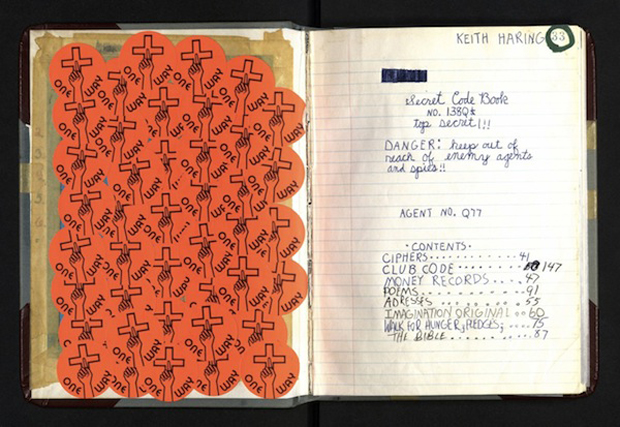 ONE WAY
KEITH HARING
33
Secret Code Book
NO. 138Q
top secret!!!
DANGER: keep out of
reach of enemy agents
and spies!!
AGENT NO. Q77
·CONTENTS·
CIPHERS 41
CLUB CODE 147
MONEY RECORDS 47
POEMS 91
ADRESSES 55
IMAGINATION ORIGINAL 60
WALK FOR HUNGER, PLEDGES, 75
THE BIBLE 87